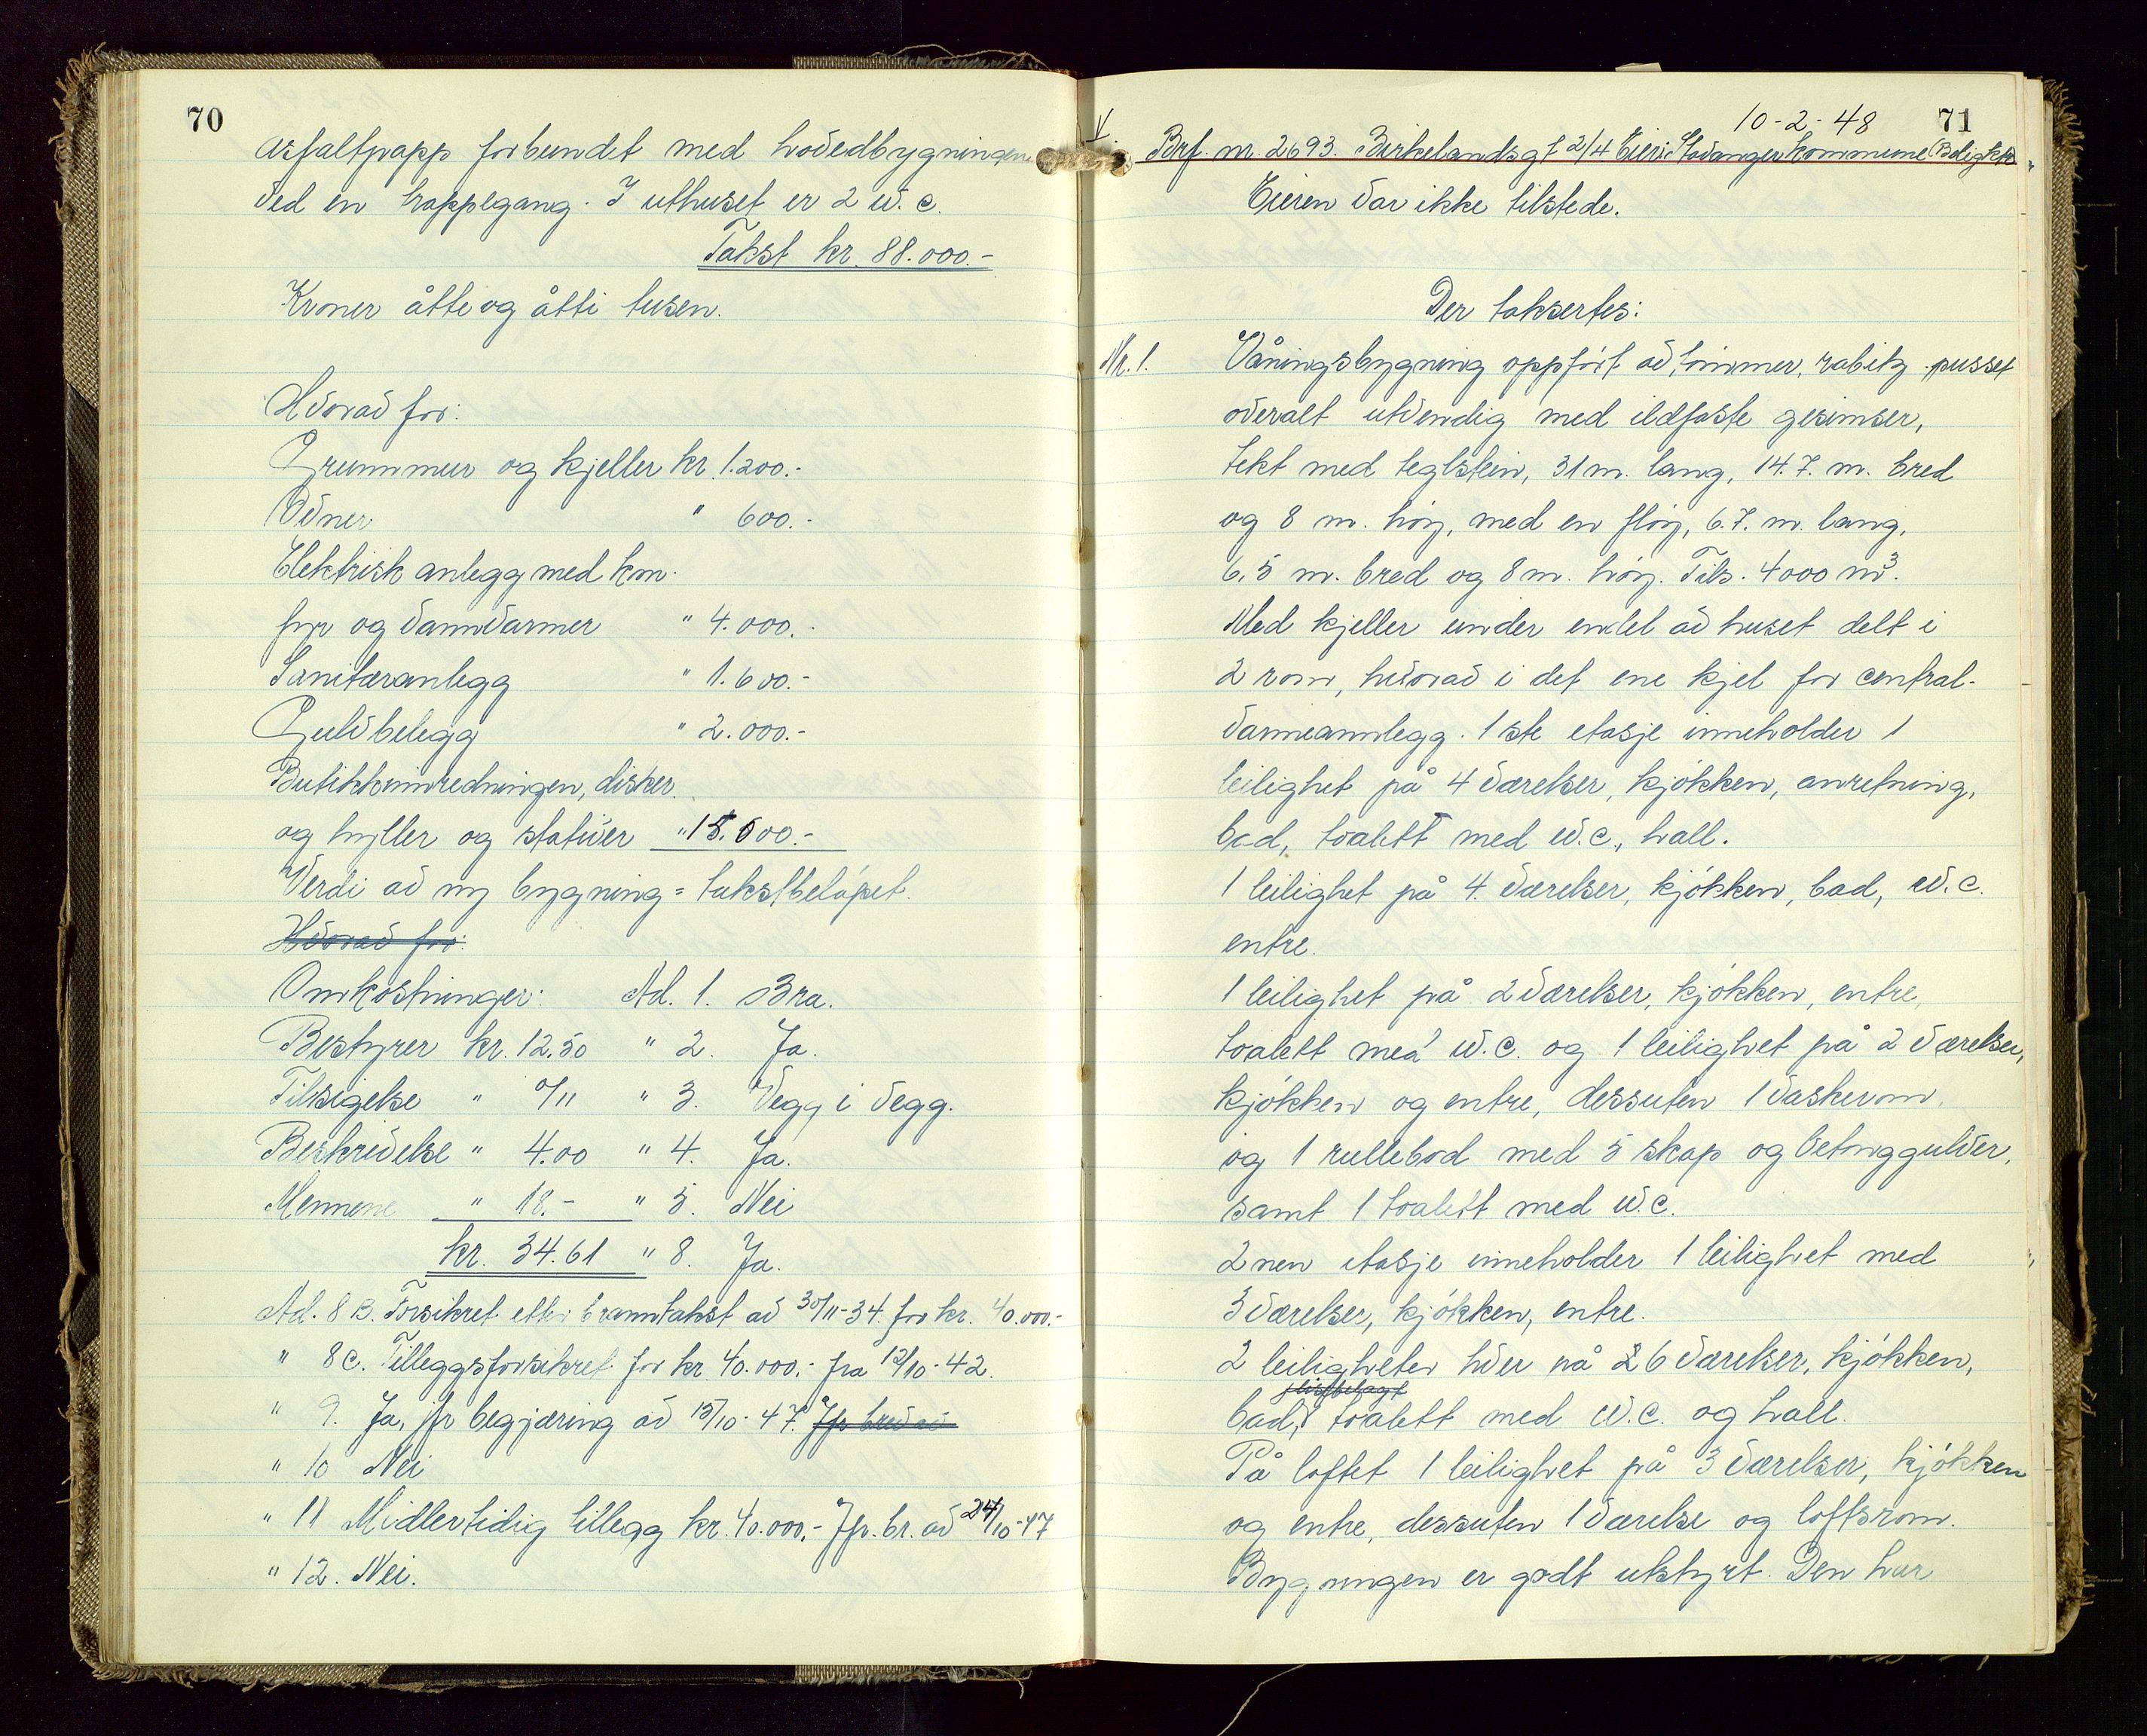 70
asfaltpapp forbundet med hovedbygningen
ved en trappegang. I uthuset er 2 w.c.
Takst kr. 88.000.-
Kroner åtte og åtti tusen.
Hvorav for:
Grunnmur og kjeller kr. 1.200.-
Ovner " 600.-
Elektrisk anlegg med km-
fyr og vannvarmer " 4.000.-
Sanitæranlegg " 1.600.-
Gulvbelegg " 2.000.-
Butikkinnredningen, disker
og hyller og stativer " 15.500.-
Verdi av ny bygning = takstbeløpet.
Hvorav for:
Omkostninger: Ad. 1. Bra.
Bestyrer kr. 12.50 " 2. Ja.
Tilsigelse " 0/11 " 3. Vegg i vegg.
Beskrivelse " 4.00 " 4. Ja.
Mennene " 18.- " 5. Nei
kr. 34.61 " 8. Ja.
Ad. 8 B. Forsikret etter branntakst av 30/11-34. for kr. 40.000.-
" 8 C. Tilleggsforsikret for kr. 40.000.- fra 12/10-42.
" 9. Ja, jfr begjæring av 15/10-47. Jfr brev av
" 10 Nei
" 11 Midlertidig tillegg kr. 40.000.- Jfr. br. av 24/10-47
" 12. Nei.
10-2-48 71
V Brf. nr. 2693. Birkelandsgt 2/4 Eier: Stavanger kommune Boligktr
Eieren var ikke tilstede.
Der taksertes:
Nr. 1. Våningsbygning oppført av tømmer, rabitz pusset
overalt utvendig med ildfaste gesimser,
tekt med teglstein, 31 m. lang, 14.7. m. bred
og 8 m. høy, med en fløy, 6.7. m. lang,
6,5 m. bred og 8 m. høy. Tils. 4000 m³.
Med kjeller under endel av huset delt i
2 rom, hvorav i det ene kjel for central-
varmeannlegg. 1ste etasje inneholder 1
leilighet på 4 værelser, kjøkken, anretning,
bad, toalett med w.c., hall.
1 leilighet på 4. værelser, kjøkken, bad, w.c.
entre.
1 leilighet på 2 værelser, kjøkken, entre,
toalett med w.c. og 1 leilighet på 2 værelser,
kjøkken og entre, dessuten 1 vaskerom
og 1 rullebod med 5 skap og betonggulver,
samt 1 toalett med w.c.
2nen etasje inneholder 1 leilighet med
3 værelser, kjøkken, entre.
2 leiligheter hver på 6 værelser, kjøkken,
flisebelagt
bad, toalett med w.c. og hall.
På loftet 1 leilighet på 3 værelser, kjøkken
og entre, dessuten 1 værelse og loftsrom.
Bygningen er godt utstyrt. Den har